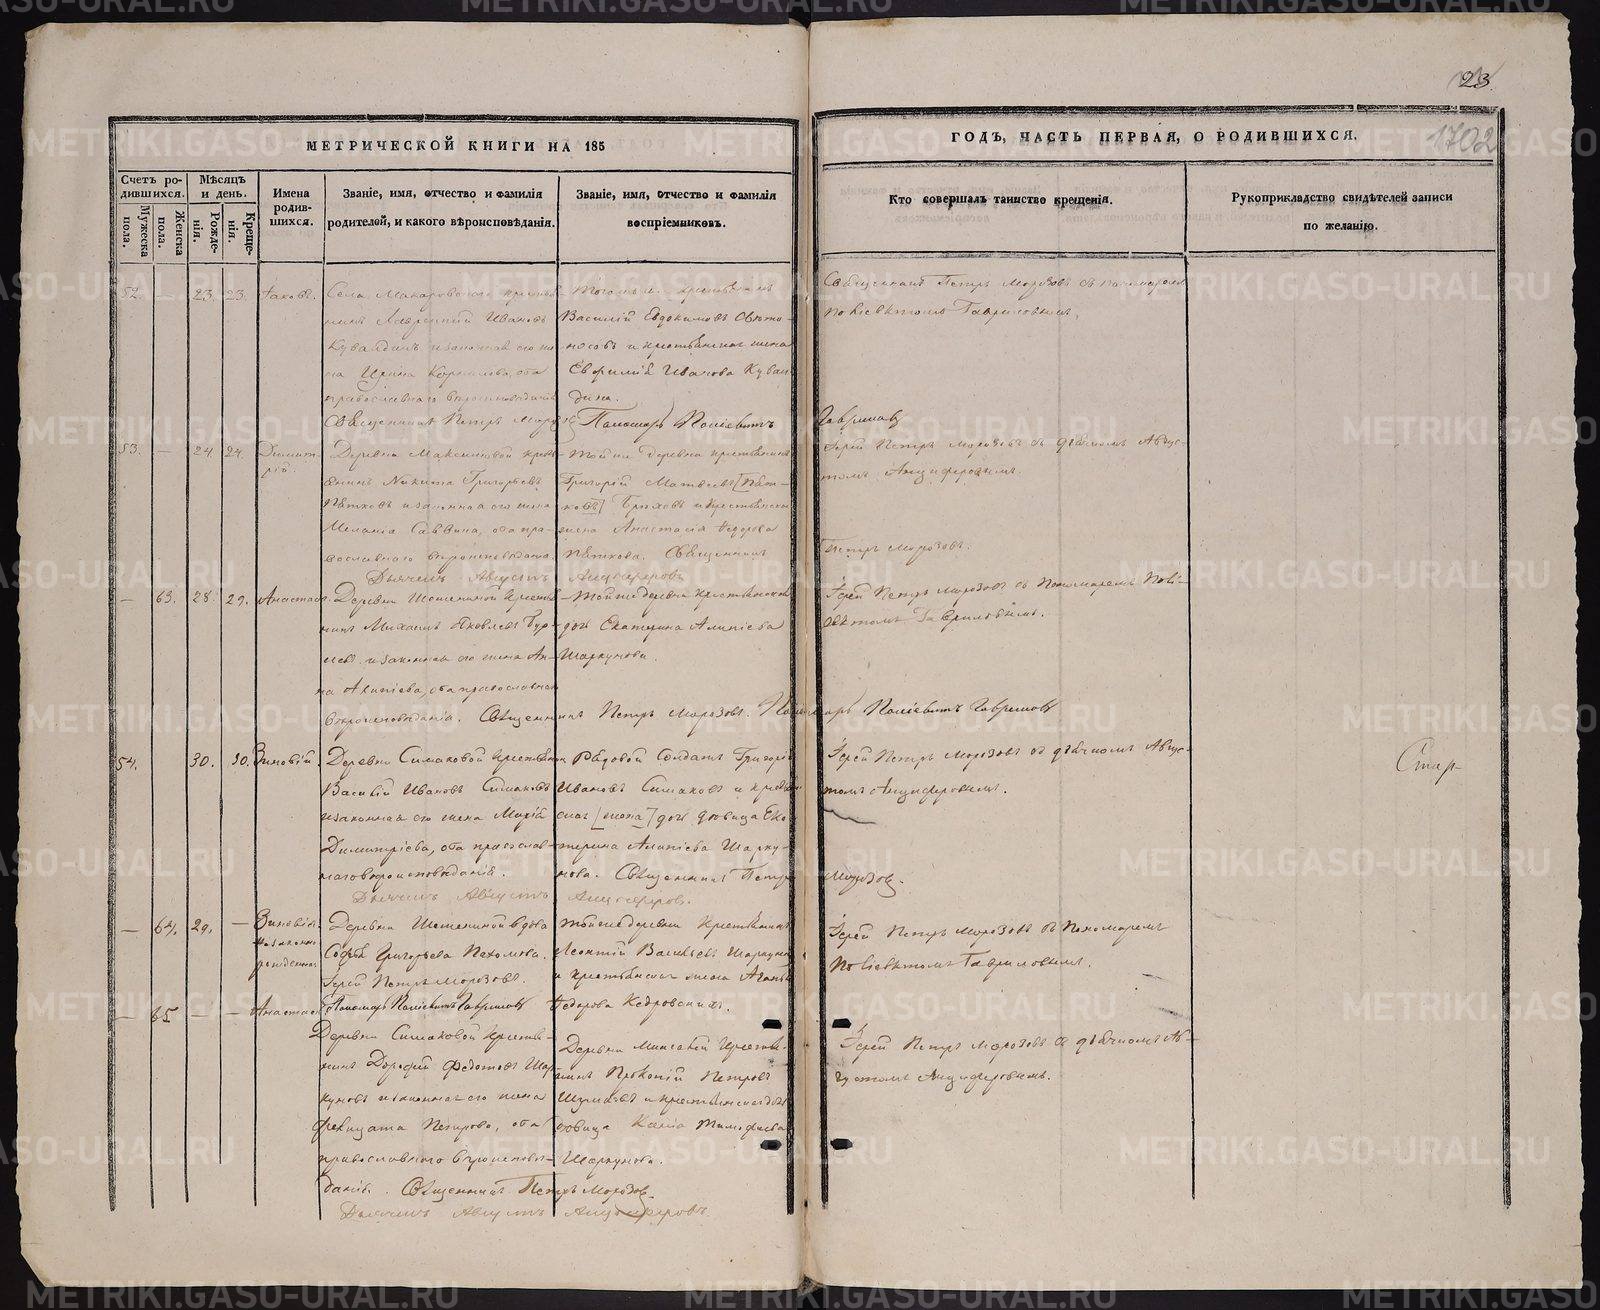 23.
1702
МЕТРИЧЕСКОЙ КНИГИ НА 185
ГОДЪ, ЧАСТЬ ПЕРВАЯ, О РОДИВШИХСЯ.
Счетъ родившихся.
Мужеска пола.
Женска пола.
Мѣсяцъ и день.
Рожденія.
Крещенія.
Имена родившихся.
Званіе, имя, отчество и фамилія родителей, и какого вѣроисповѣданія.
Званіе, имя, отчество и фамилія воспріемниковъ.
Кто совершалъ таинство крещенія.
Рукоприкладство свидѣтелей записи по желанію.
52. — 23. 23. Іаковъ.
Села Макаровскаго крестья-
нинъ Лаврентій Ивановъ
Кувалдинъ и законная его же-
на Ирина Корнилова, оба
православнаго вѣроисповѣданія
Священникъ Петръ Морозовъ
Тогоже крестьянинъ
Василій Евдокимовъ Свѣто-
носовъ и крестьянская жена
Евфимія Иванова Кувал-
дина.
Пономарь Полієвктъ Гавриловъ
Священникъ Петръ Морозовъ съ пономаремъ
Поліевктомъ Гавриловымъ.
53. — 24. 24. Димит-
рій.
Деревни Максимовой крест-
янинъ Никита Григорьевъ
Пѣтковъ и законная его жена
Меланія Саввина, оба пра-
вославнаго вѣроисповѣданія.
Дьячекъ Августъ Анциферовъ
Тойже деревни крестьянинъ
Григорій Матвеевъ [Пѣт-
ковъ] и крестьянская
жена Анастасія Ѳедорова
Пѣткова. Священникъ
Петръ Морозовъ.
Іерей Петръ Морозовъ съ дьячкомъ Авгус-
томъ Анциферовымъ.
— 63. 28. 29. Анастасія.
Деревни Шешениной крестья-
нинъ Михаилъ Яковлевъ Бур-
левъ и законная его жена Ан-
на Алипіева, оба православнаго
вѣроисповѣданія. Священникъ Петръ Морозовъ. Пономарь Поліевктъ Гавриловъ
Тойже деревни крестьянская
дочь Екатерина Алипіева
Шаркунова.
Іерей Петръ Морозовъ съ Пономаремъ Полі-
евктомъ Гавриловымъ.
54. 30. 30. Зиновій.
Деревни Симаковой крестьянинъ
Василій Ивановъ Симаковъ
и законная его жена Марія
Димитріева, оба православ-
наго вѣроисповѣданія.
Дьячекъ Августъ Анциферовъ.
Рядовой Солдатъ Григорій
Ивановъ Симаковъ и крестьян-
ская [жена] дочь дѣвица Ека-
терина Алипіева Шарку-
нова. Священникъ Петръ
Морозовъ.
Іерей Петръ Морозовъ съ дьячкомъ Авгус-
томъ Анциферовымъ.
— 64. 29. — Зиновія.
незаконно
рожденная
Деревни Шешениной вдова
Софья Григорьева Пахомова.
Іерей Петръ Морозовъ.
Пономарь Поліевктъ Гавриловъ
Тойже деревни Крестьянинъ
Леонтій Васильевъ Шаркуновъ
и крестьянская жена Агафья
Ѳедорова Кедровскихъ.
Іерей Петръ Морозовъ съ Пономаремъ
Поліевктомъ Гавриловымъ.
— 65 — — Анастасія
Деревни Симаковой Крестья-
нинъ Дорофей Федотовъ Шар-
куновъ и законная его жена
Фелицата Петрова, оба
православнаго вѣроисповѣ-
данія. Священникъ Петръ Морозовъ.
Дьячекъ Августъ Анциферовъ.
Деревни Минѣевой Крестья-
нинъ Прокопій Петровъ
Шумковъ и крестьянская дочь
дѣвица Ксенія Тимофеева
Шаркунова.
Іерей Петръ Морозовъ съ дьячкомъ Ав-
густомъ Анциферовымъ.
METRIKI.GASO-URAL.RU